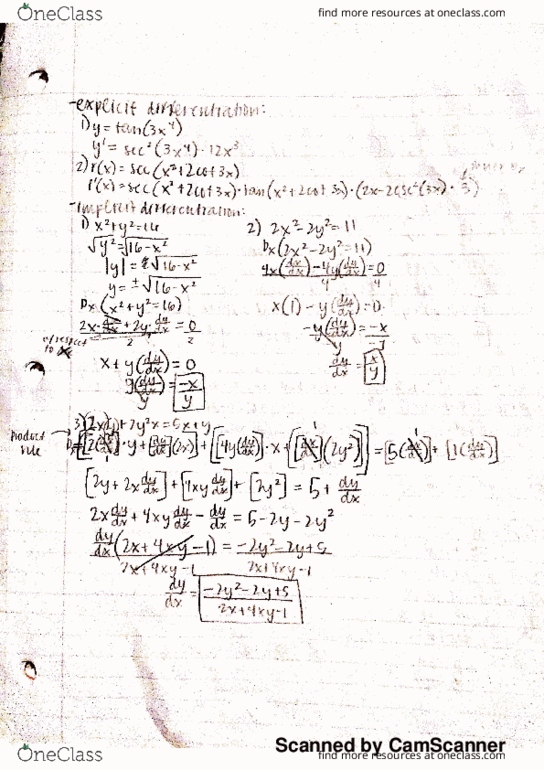 OneClass
find more resources at oneclass.com
-explicit differentiation:
1) y = tan(3x⁴)
y' = sec²(3x⁴)·12x³
2) r(x) = sec(x²+2cot3x)
r'(x) = sec(x²+2cot3x)·tan(x²+2cot3x)·(2x-2csc²(3x)·3)
-implicit differentiation:
1) x²+y²=16
√y² = √16-x²
|y| = ±√16-x²
y = ±√16-x²
Dx (x²+y²=16)
2x·dx/dx + 2y·dy/dx = 0
2 2
w/respect to x
x + y(dy/dx) = 0
y(dy/dx) = -x/y
y
2) 2x²-2y²=11
Dx(2x²-2y²=11)
4x(dx/dx) - 4y(dy/dx) = 0
4 4
x(1) - y(dy/dx) = 0
-y(dy/dx) = -x
-y -y
dy/dx = x/y
3) (2x)(y)+2y²x = 5x+y
Product rule
[2(dx/dx)·y+(dy/dx)(2x)]+[[4y(dy/dx)]·x+[dx/dx](2y²)] = [5(dx/dx)]+[1(dy/dx)]
[2y+2x dy/dx]+[4xy dy/dx]+[2y²] = 5+dy/dx
2x dy/dx + 4xy dy/dx - dy/dx = 5-2y-2y²
dy/dx(2x+4xy-1) = -2y²-2y+5
2x+4xy-1 2x+4xy-1
dy/dx = -2y²-2y+5 / 2x+4xy-1
Scanned by CamScanner
OneClass
find more resources at oneclass.com